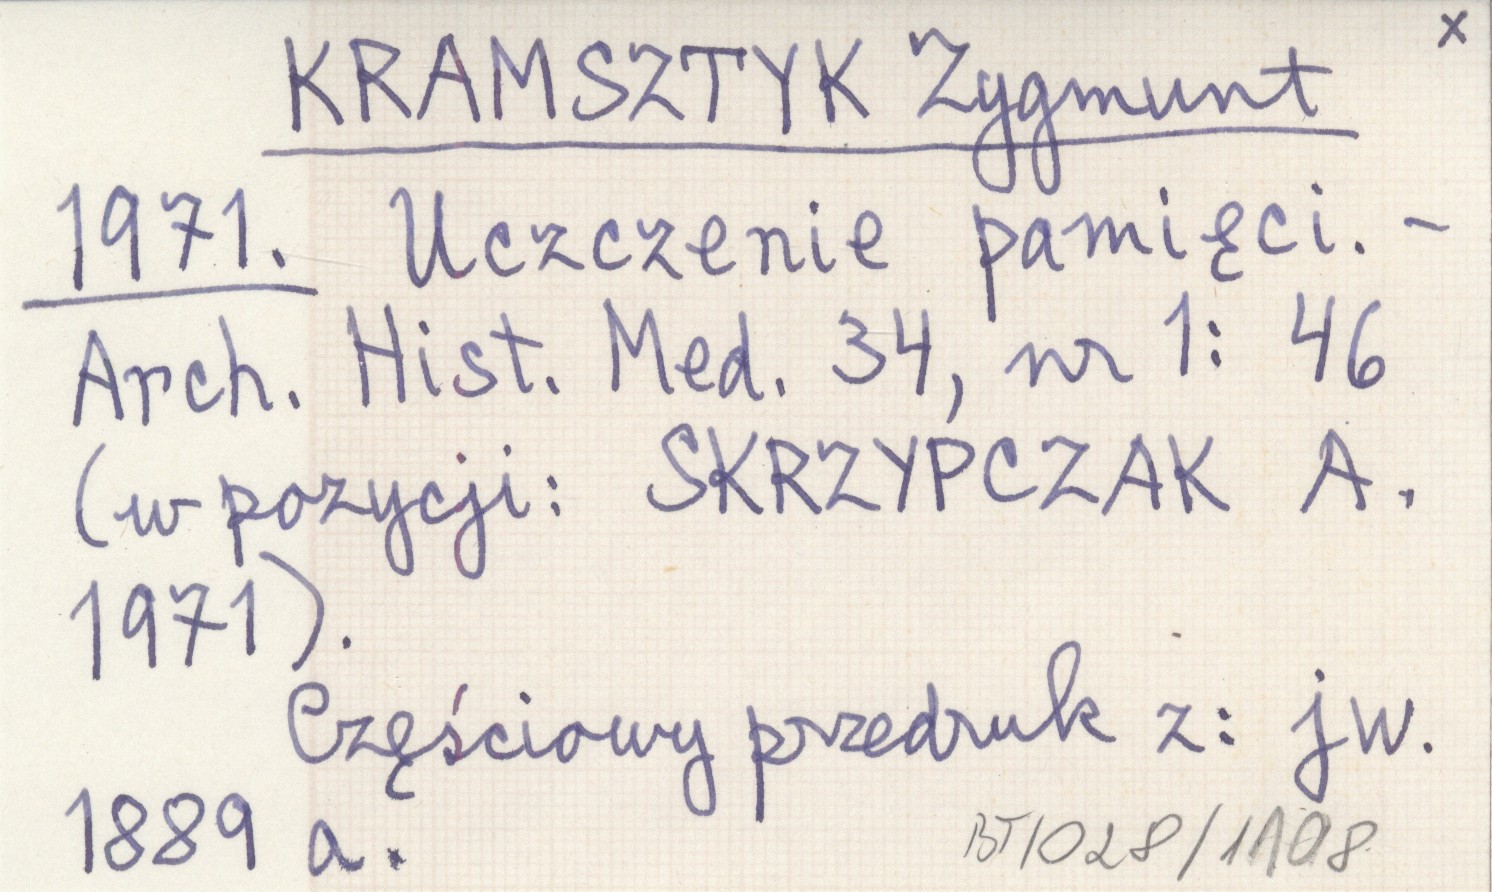 x
KRAMSZTYK Zygmunt
1971. Uczczenie pamięci. -
Arch. Hist. Med. 34, nr 1: 46
(w pozycji: SKRZYPCZAK A.
1971).
Częściowy przedruk z: jw.
1889 a.